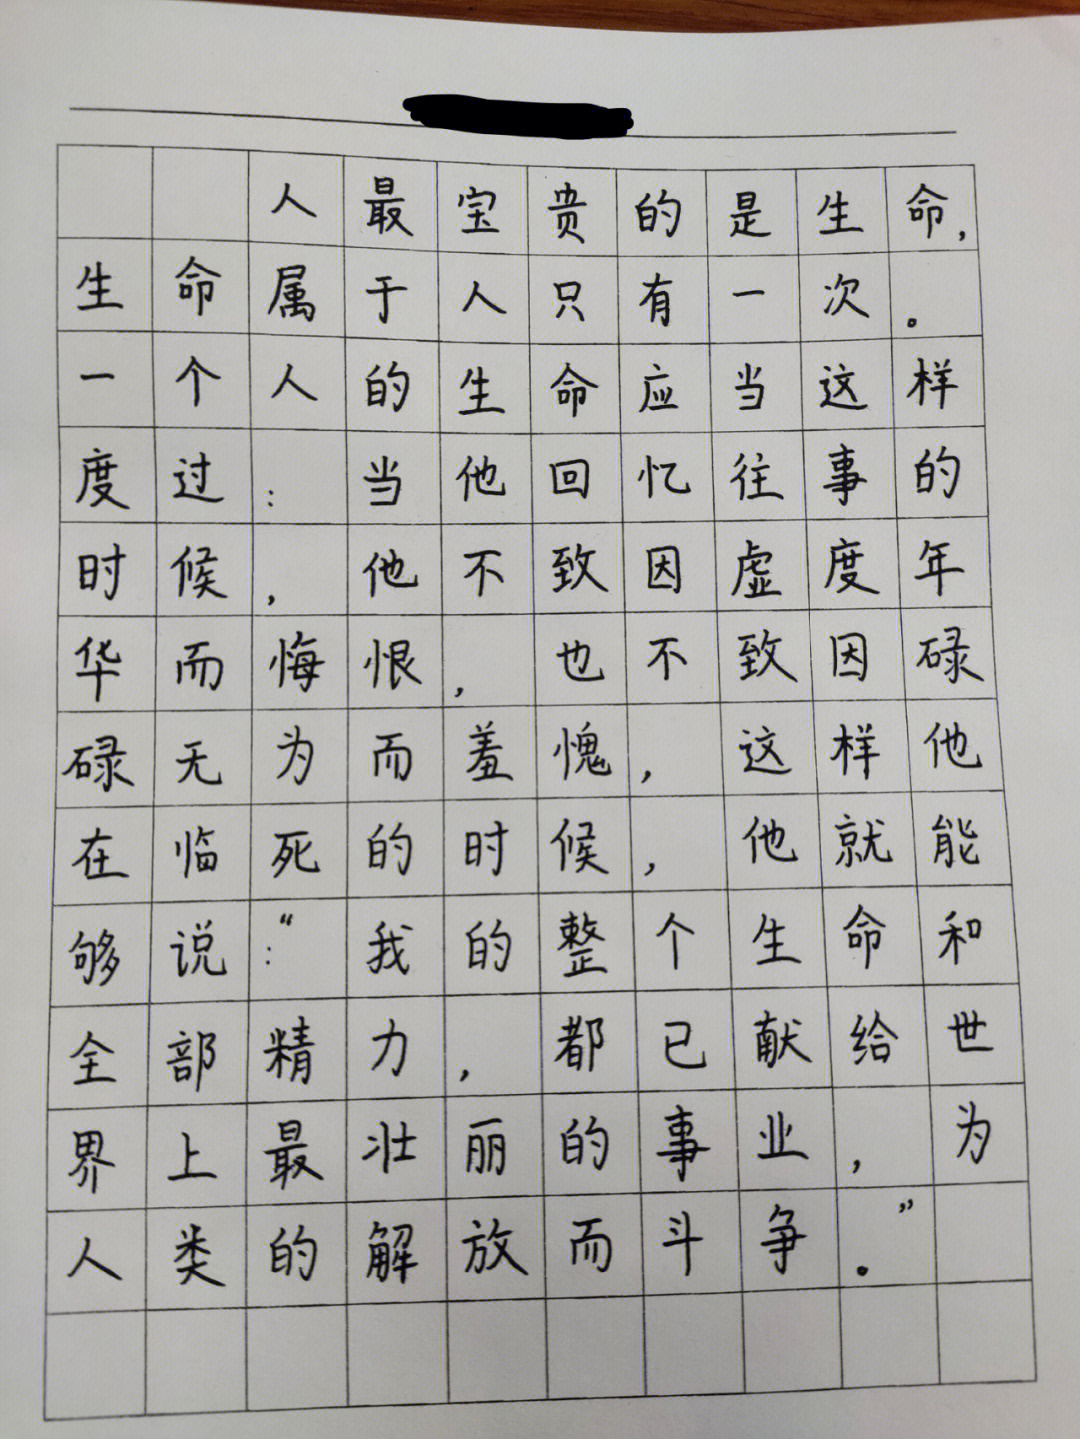 人最宝贵的是生命,
生命属于人只有一次。
一个人的生命应当这样
度过:当他回忆往事的
时候,他不致因虚度年
华而悔恨,也不致因碌
碌无为而羞愧,这样他
在临死的时候,他就能
够说:“我的整个生命和
全部精力,都已献给世
界上最壮丽的事业,为
人类的解放而斗争。”